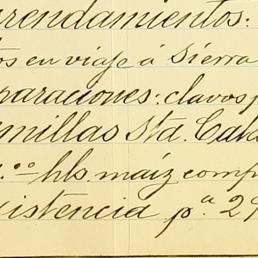 arrendamientos:
os en viaje á Sierra
paraciones: clavos p
millas Sta. Cata
.oo hls. maíz comp
istencia pª 29